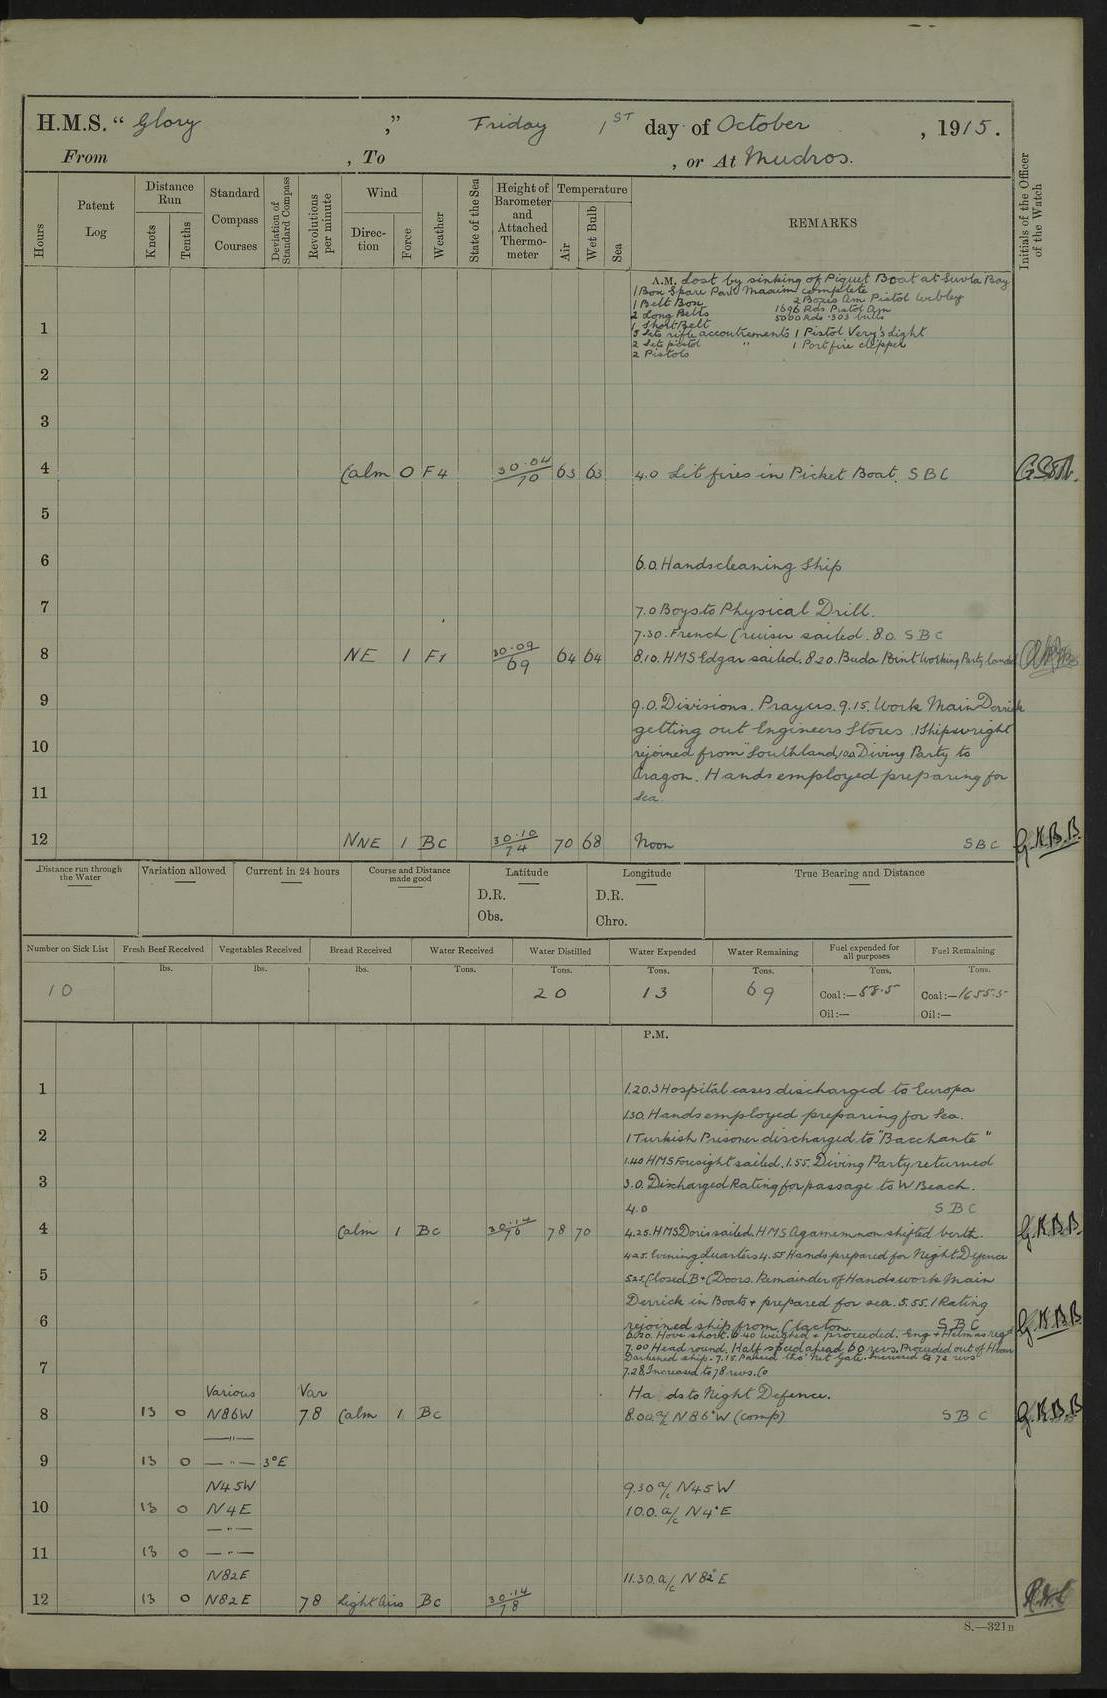 H.M.S. “ Glory ,” Friday 1ST day of October , 1915.
From , To , or At Mudros.
Hours
Patent Log
Distance Run
Knots
Tenths
Standard Compass Courses
Deviation of Standard Compass
Revolutions per minute
Wind
Direction
Force
Weather
State of the Sea
Height of Barometer and Attached Thermometer
Temperature
Air
Wet Bulb
Sea
REMARKS
Initials of the Officer of the Watch
A.M. Lost by sinking of Piquet Boat at Suvla Bay
1 Box Spare Parts Maxim complete
1 Belt Box 2 Boxes Am Pistol Webley
2 Long Belts 1696 Rds Pistol Am
1 Short Belt 5000 Rds .303 balls
1
3 Sets rifle accoutrements 1 Pistol Very's Light
2 Sets pistol " 1 Portfire clipper
2 Pistols
2
3
4 Calm 0 F4 30.04/70 63 63 4.0 Lit fires in Picket Boat. SBC
5
6 6.0. Hands cleaning Ship
7 7.0 Boys to Physical Drill.
7.30. French Cruiser sailed. 8.0. SBC
8 NE 1 F1 30.09/69 64 64 8.10. HMS Edgar sailed. 8.20. Buda Point Working Party landed
9 9.0. Divisions. Prayers. 9.15. Work Main Derrick
getting out Engineers Stores. 1 Shipwright
10 rejoined from "Southland". Diving Party to
Aragon. Hands employed preparing for
11 Sea.
12 NNE 1 BC 30.10/74 70 68 Noon SBC G.K.B.B.
Distance run through the Water
Variation allowed
Current in 24 hours
Course and Distance made good
Latitude
D.R.
Obs.
Longitude
D.R.
Chro.
True Bearing and Distance
Number on Sick List Fresh Beef Received Vegetables Received Bread Received Water Received Water Distilled Water Expended Water Remaining Fuel expended for all purposes Fuel Remaining
lbs. lbs. lbs. Tons. Tons. Tons. Tons. Tons. Tons.
10 20 13 69 Coal:— 58.5 Coal:— 1655.5
Oil:— Oil:—
P.M.
1 1.20. 3 Hospital cases discharged to Europa
1.30. Hands employed preparing for Sea.
2 1 Turkish Prisoner discharged to "Bacchante"
1.40 HMS Foresight sailed. 1.55. Diving Party returned
3 3.0. Discharged Rating for passage to W Beach.
4.0 SBC
4 Calm 1 BC 30.14/76 78 70 4.25. HMS Doris sailed. HMS Agamemnon shifted berth. G.K.B.B.
4.25. Evening Quarters 4.55 Hands prepared for Night Defence
5 5.25. Closed B+C Doors. Remainder of Hands work Main
Derrick in Boats + prepared for sea. 5.55. 1 Rating
6 rejoined ship from Clacton. SBC G.K.B.B.
6.20. Hove short. 6.40 weighed + proceeded. Eng + Helm as reqd
7.00 Head round. Half speed ahead 60 revs. Proceeded out of Hbour
7 Darkened ship. 7.15. Passed the Net Gate. Increased to 72 revs
7.28. Increased to 78 revs. Co
Various Var Ha ds to Night Defence.
8 13 0 N86W 78 Calm 1 BC 8.00. a/c N86°W (comp) SBC G.K.B.B.
—"—
9 13 0 —"— 3°E
N45W 9.30 a/c N45W
10 13 0 N4E 10.0. a/c N4°E
—"—
11 13 0 —"—
N82E 11.30. a/c N82°E
12 13 0 N82E 78 Light Airs BC 30.14/78
S.—321B